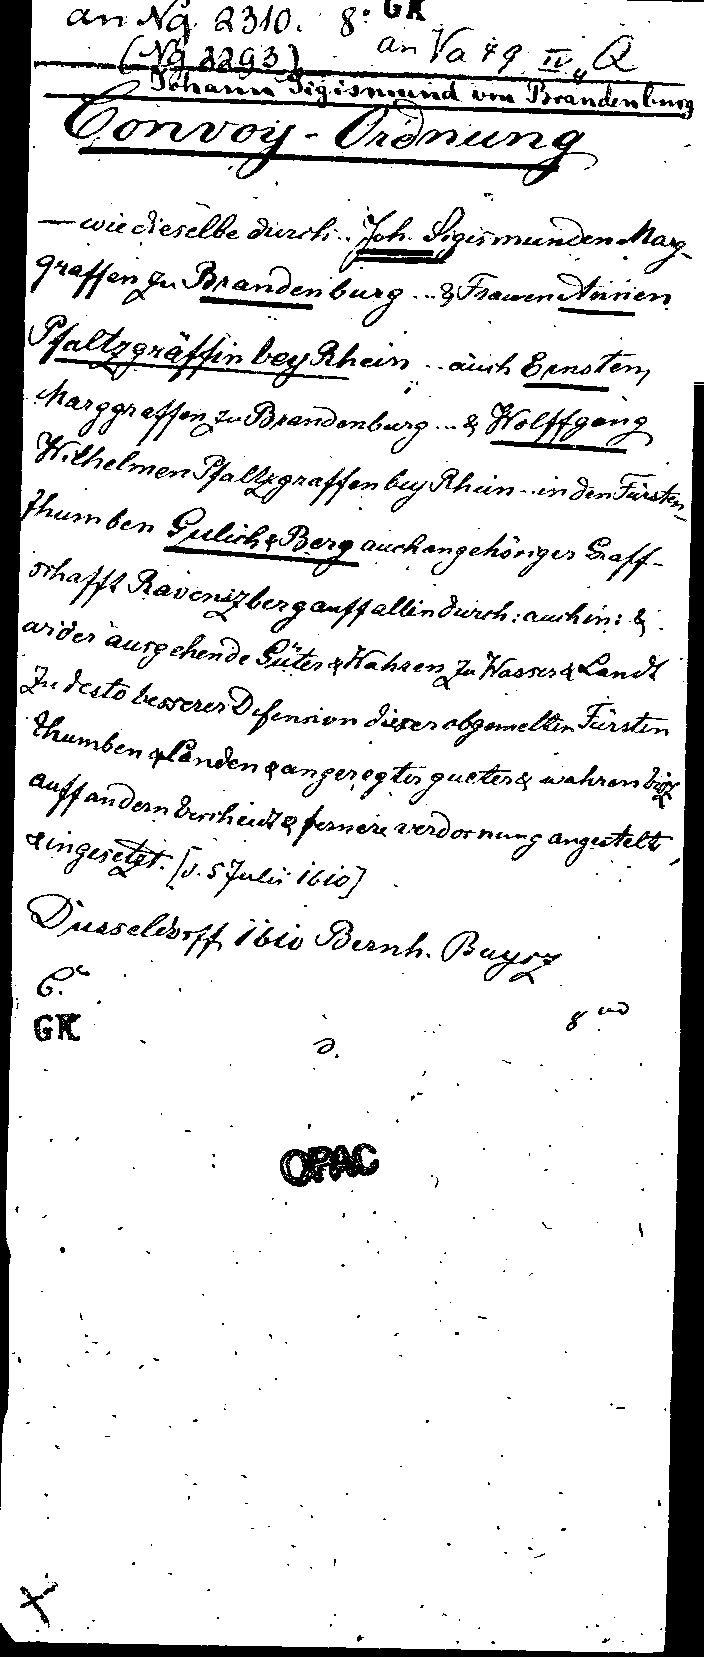 an Ng 2310. 8° GK
(Ng 2293) an Va 49 IV, Q
Johann Sigismund von Brandenburg
Convoy-Ordnung
— wie dieselbe durch .. Joh. Sigismunden Marg-
graffen zu Brandenburg ... & Frawen Annen
Pfaltzgräffin bey Rhein ... auch Ernsten,
Marggraffen zu Brandenburg ... & Wolffgang
Wilhelmen Pfaltzgraffen bey Rhein ... in den Fürsten-
thumben Gulich & Berg auch angehöriger Graff-
schafft Ravenszberg auff allin durch: auch in: &
wider ausgehende Güter & Wahren zu Wasser & Landt
zu desto besserer Defension dieser obgemelten Fürsten
thumben & Landen & angeregter gueter & wahren bisz
auff andern bescheidt & fernere verdornung angestelt,
& eingesetzt. [d. 5 Julii 1610]
Dusseldorff 1610 Bernh. Buysz
C.
GK 8
d.
OPAC